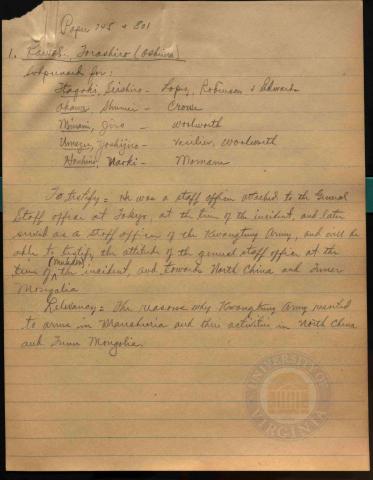 Paper 745 & 801
1. Kawabe, Torashiro (Oshima)
Subpoenaed for:
Itagaki, Seishiro - Lopez, Robinson & Edwards
Okawa, Shumei - Crowe
Minami, Jiro - Woolworth
Umezu, Yoshijiro - Woolworth
Hoshino, Naoki -
To testify = He was a staff officer attached to the General
Staff office at Tokyo, at the time of the incident, and later
served as a staff officer of the Kwangtung Army, and will be
able to testify the attitude of the general staff office at the
time of (Mukden) the incident, and towards North China and Inner
Mongolia
Relevancy = The reasons why Kwangtung Army
to arms in Manchuria and their activities in North China
and Inner Mongolia.
UNIVERSITY OF VIRGINIA